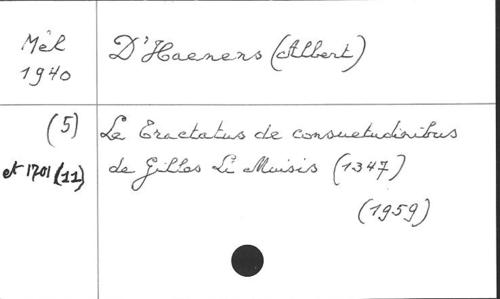 Mél
1940
D'Haenens (Albert)
(5)
et 1701 (11)
Le Tractatus de consuetudinibus
de Gilles Li Muisis (1347)
(1959)